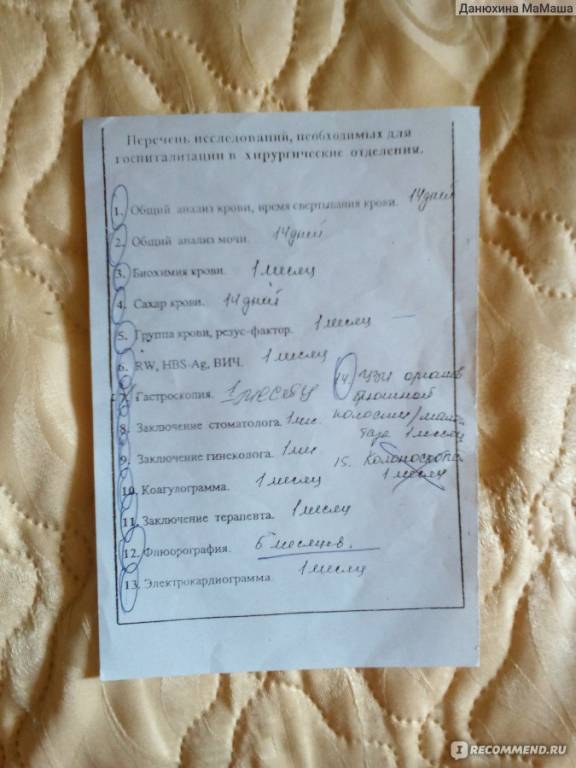 Данюхина МаМаша
Перечень исследований, необходимых для
госпитализации в хирургические отделения.
1. Общий анализ крови, время свертывания крови. 14 дней
2. Общий анализ мочи. 14 дней
3. Биохимия крови. 1 месяц
4. Сахар крови. 14 дней
5. Группа крови, резус-фактор. 1 месяц
6. RW, HBS-Ag, ВИЧ. 1 месяц
7. Гастроскопия. 1
14. УЗИ органов
брюшной
полости/мал.
таза 1 месяц
8. Заключение стоматолога. 1 мес
9. Заключение гинеколога. 1 мес
15. Колоноскопия
1 месяц
10. Коагулограмма. 1 месяц
11. Заключение терапевта. 1 месяц
12. Флюорография. 6 месяцев.
13. Электрокардиограмма. 1 месяц
IRECOMMEND.RU